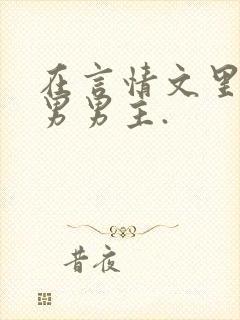 在言情文里
男男主.
昔夜